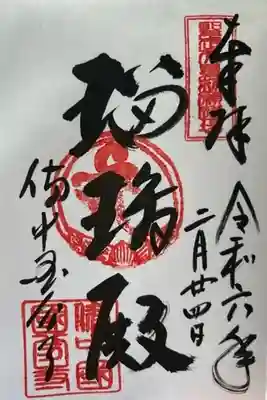 奉拝
令和六年
二月廿四日
瑠璃殿
備中国分寺